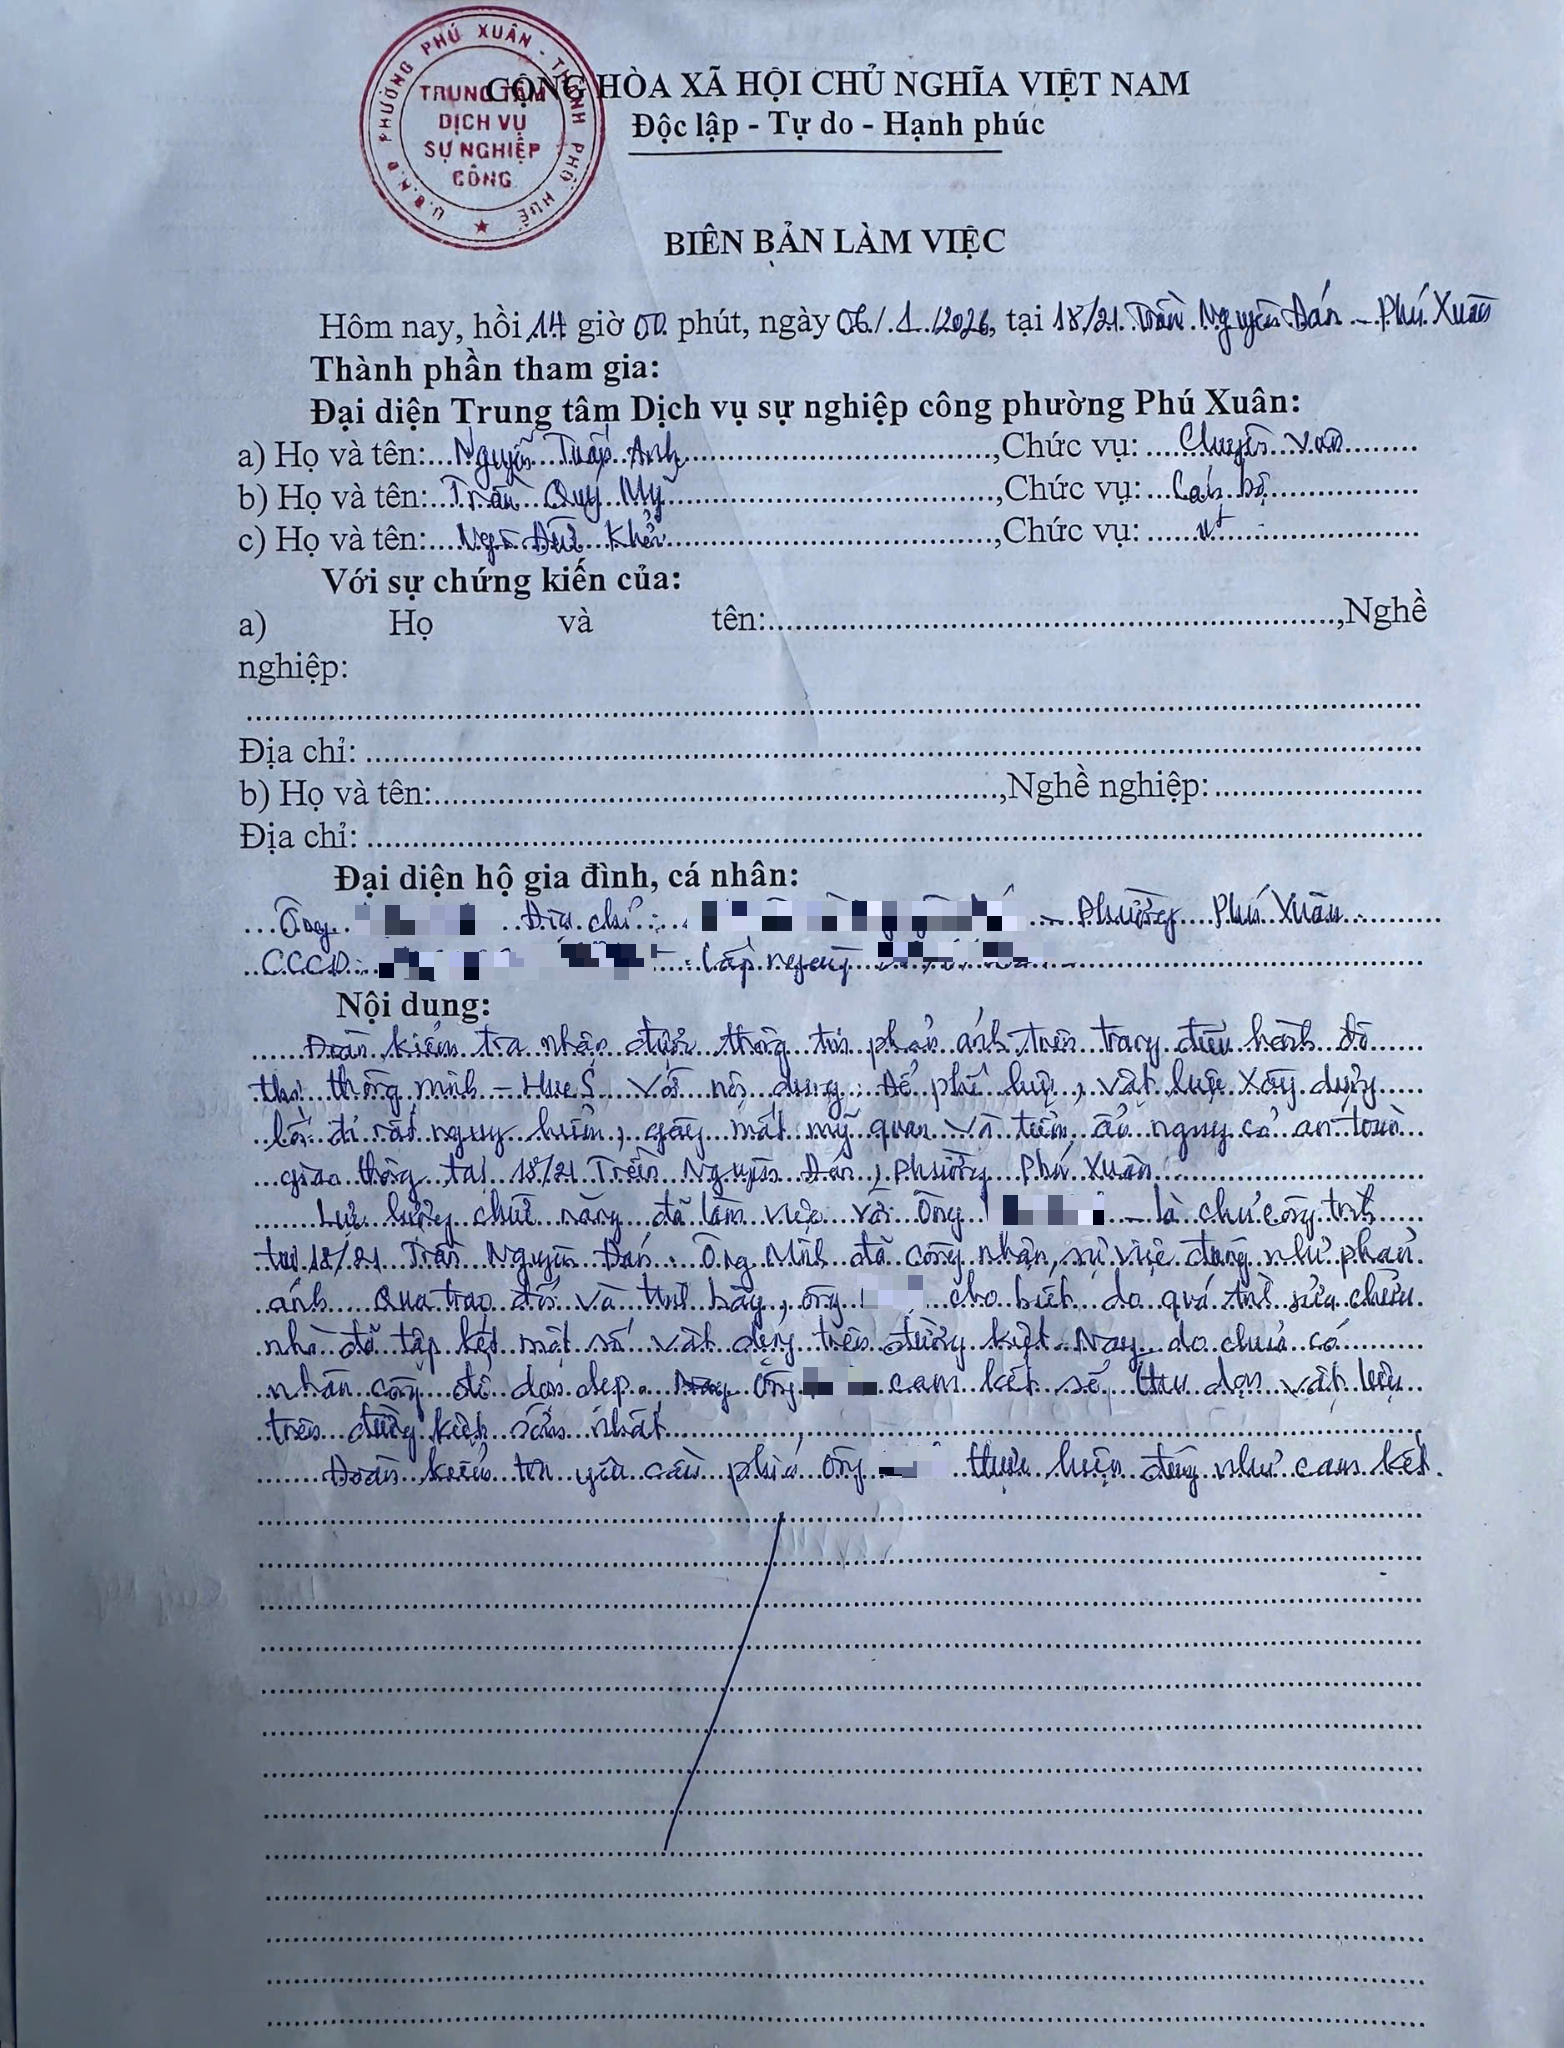 U.B.N.D PHƯỜNG PHÚ XUÂN - THÀNH PHỐ HUẾ
TRUNG TÂM
DỊCH VỤ
SỰ NGHIỆP
CÔNG
CỘNG HÒA XÃ HỘI CHỦ NGHĨA VIỆT NAM
Độc lập - Tự do - Hạnh phúc
BIÊN BẢN LÀM VIỆC
Hôm nay, hồi 14 giờ 00 phút, ngày 06/1/2026, tại 18/21 Trần Nguyên Đán - Phú Xuân
Thành phần tham gia:
Đại diện Trung tâm Dịch vụ sự nghiệp công phường Phú Xuân:
a) Họ và tên: Nguyễn Tuấn Anh, Chức vụ: Chuyên viên
b) Họ và tên: Trần Quý Mỹ, Chức vụ: Cán bộ
c) Họ và tên: Ngô Đức Khởi, Chức vụ: nt
Với sự chứng kiến của:
a) Họ và tên:, Nghề
nghiệp:
Địa chỉ:
b) Họ và tên:, Nghề nghiệp:
Địa chỉ:
Đại diện hộ gia đình, cá nhân:
Ông Địa chỉ: - Phường Phú Xuân
CCCD: cấp ngày
Nội dung:
Đoàn kiểm tra nhận được thông tin phản ánh trên trang điều hành đô
thị thông minh - HueS với nội dung: Để phế liệu, vật liệu xây dựng
lối đi rất nguy hiểm, gây mất mỹ quan và tiềm ẩn nguy cơ an toàn
giao thông tại 18/21 Trần Nguyên Đán, Phường Phú Xuân.
Lực lượng chức năng đã làm việc với Ông - là chủ công trình
tại 18/21 Trần Nguyên Đán. Ông Minh đã công nhận sự việc đúng như phản
ánh. Qua trao đổi và trình bày, ông cho biết do quá trình sửa chữa
nhà đã tập kết một số vật dụng trên đường kiệt. Nay do chưa có
nhân công để dọn dẹp. Ông cam kết sẽ thu dọn vật liệu
trên đường kiệt sớm nhất.
Đoàn kiểm tra yêu cầu phía ông thực hiện đúng như cam kết.